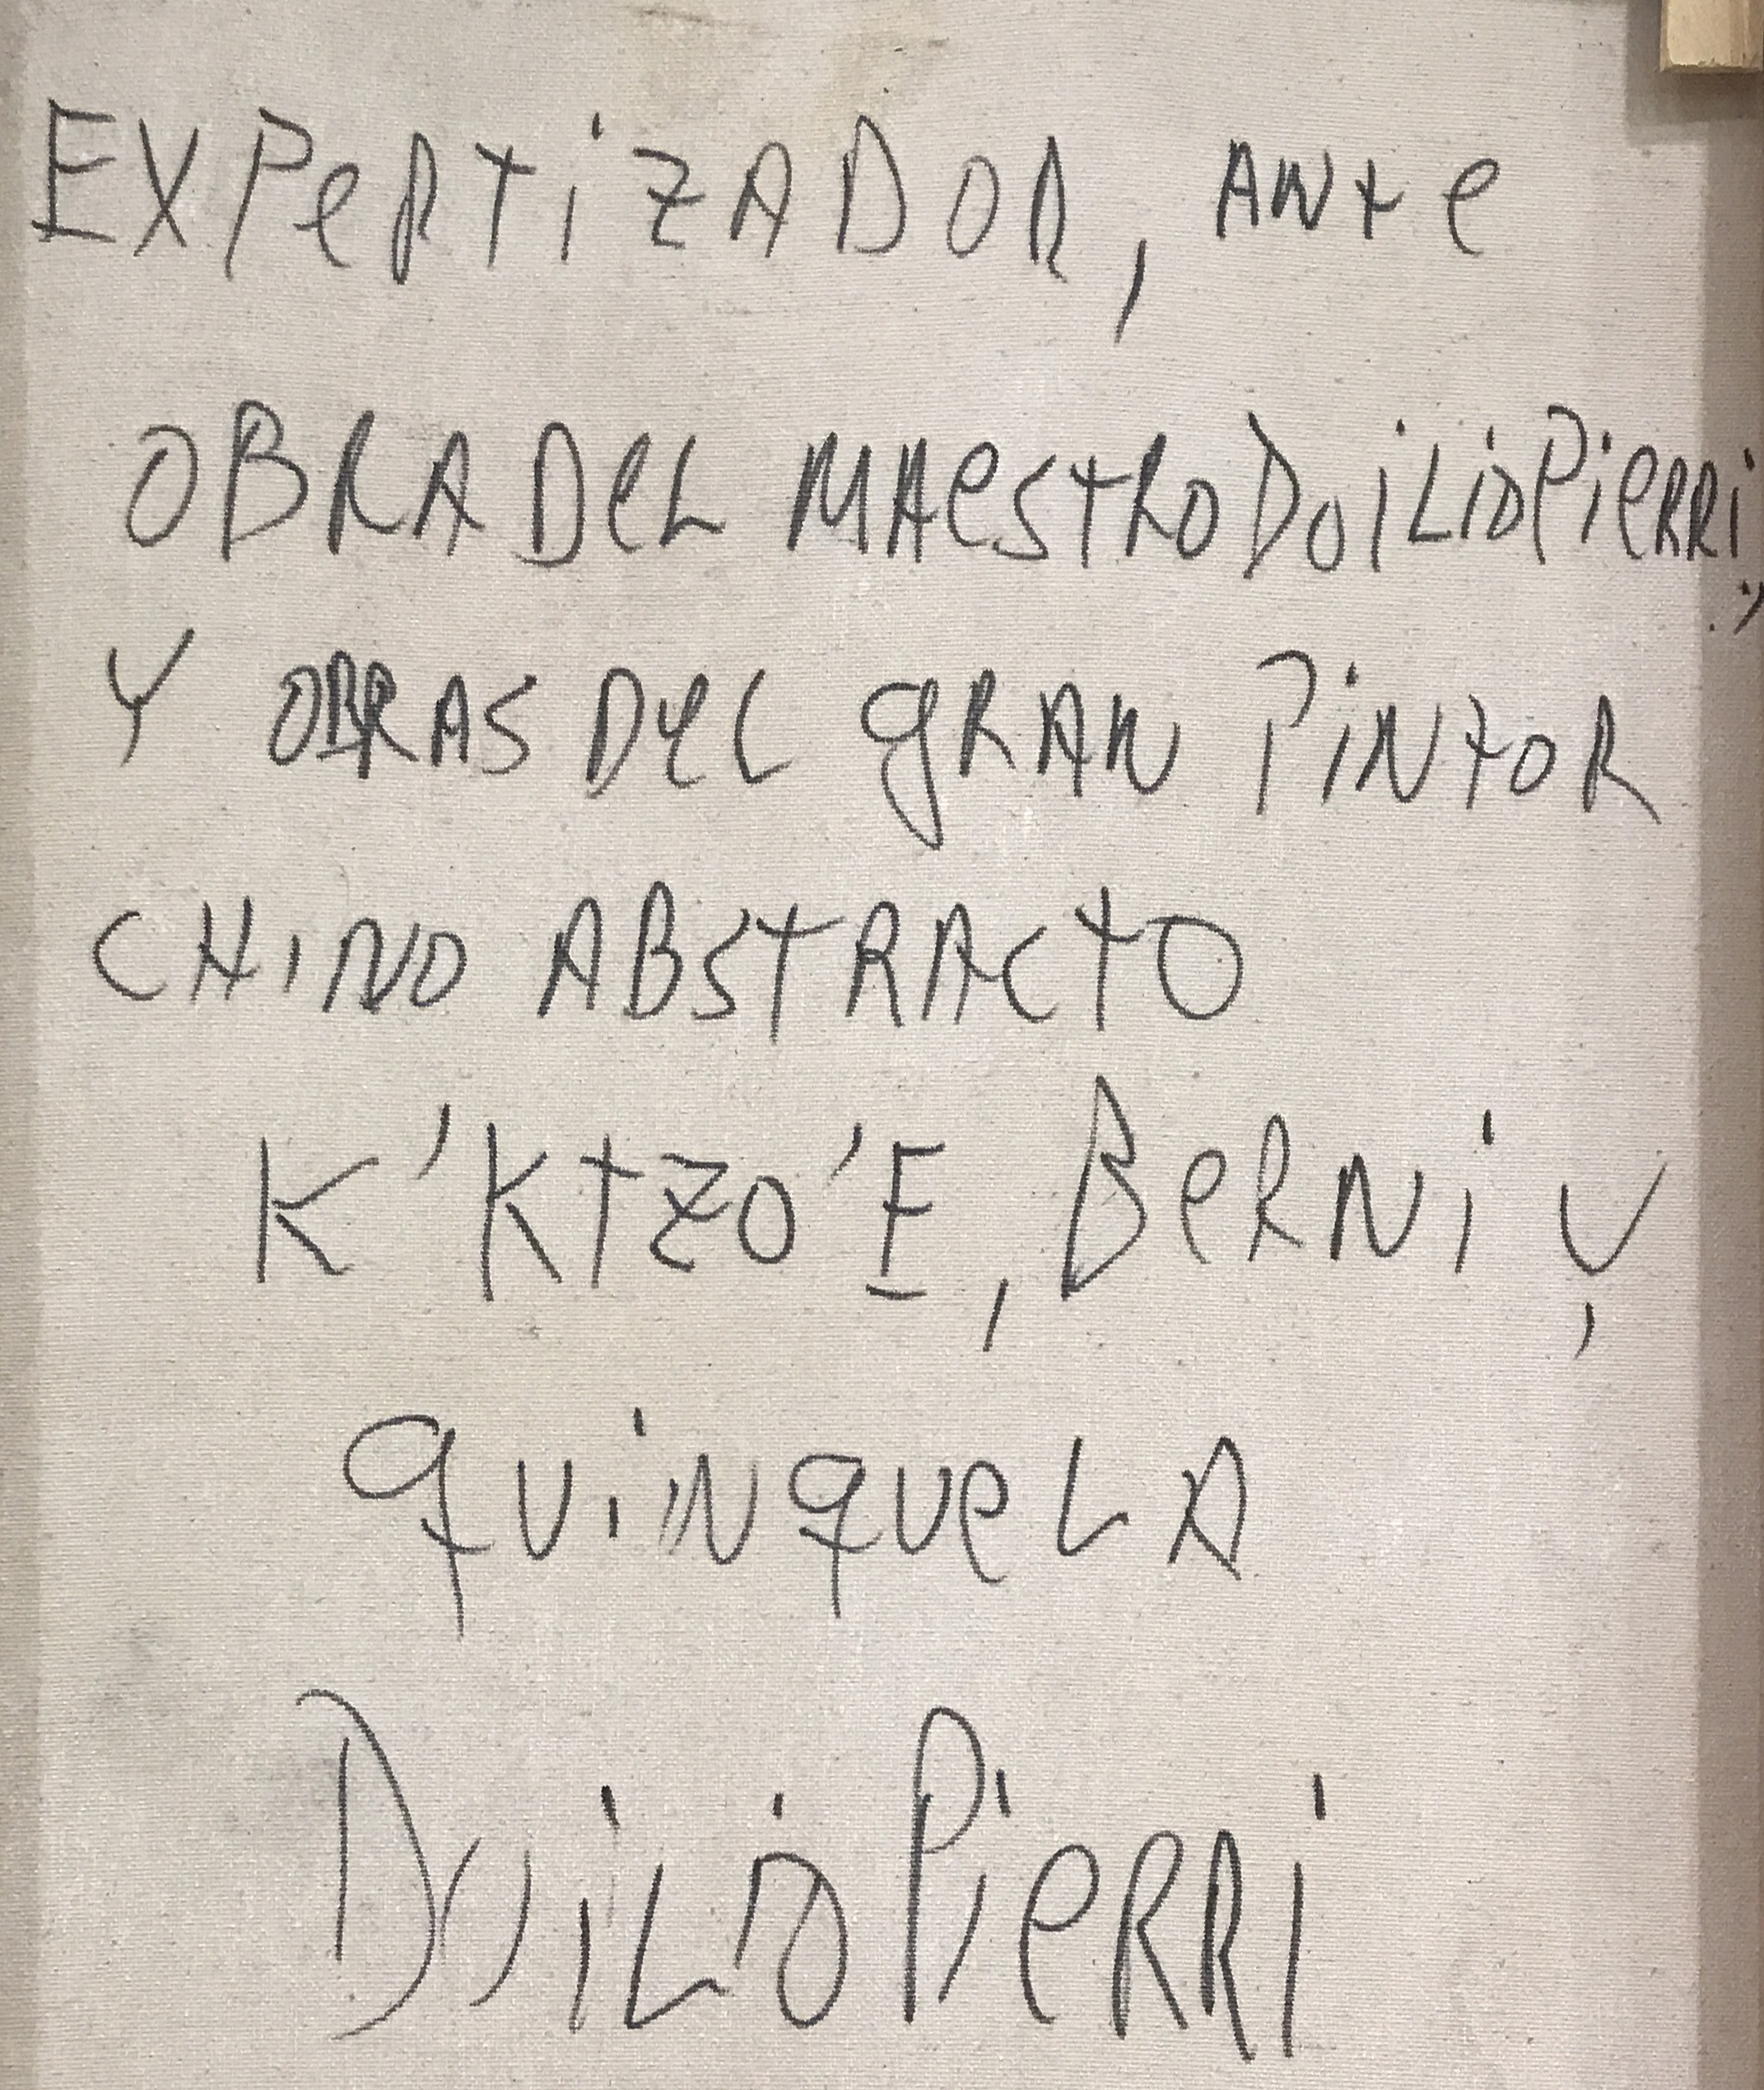 EXPERTIZADOR, ANTE
OBRA DEL MAESTRO DUILIO PIERRI,
Y OBRAS DEL GRAN PINTOR
CHINO ABSTRACTO
K'KTZO'E, BERNI Y
QUINQUELA
DUILIO PIERRI